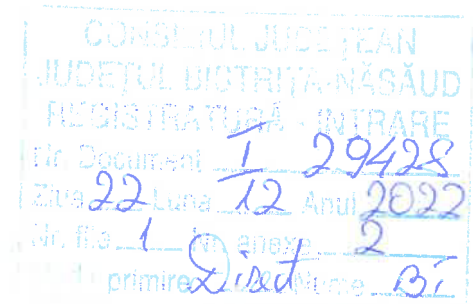 CONSILIUL JUDEȚEAN
JUDEȚUL BISTRIȚA-NĂSĂUD
REGISTRATURĂ - INTRARE
Nr. Document I 29428
Ziua 22 Luna 12 Anul 2022
Nr. file 1 Nr. anexe 2
primire Nume